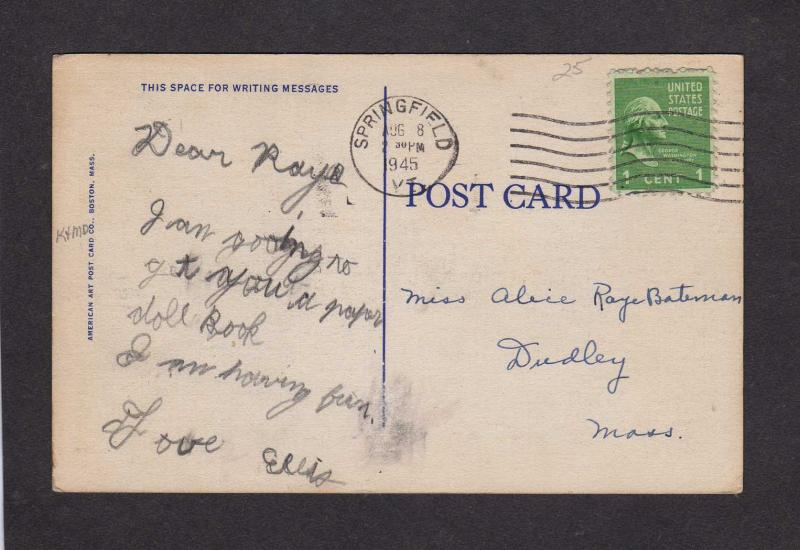 25
THIS SPACE FOR WRITING MESSAGES
UNITED
STATES
POSTAGE
GEORGE
WASHINGTON
1 CENT 1
SPRINGFIELD
AUG 8
30PM
1945
VT.
POST CARD
Dear Raye
I am going to
get you a paper
doll Book
I am having fun.
Love
Ellis
Miss Alice Raye Bateman
Dudley
Mass.
AMERICAN ART POST CARD CO., BOSTON, MASS.